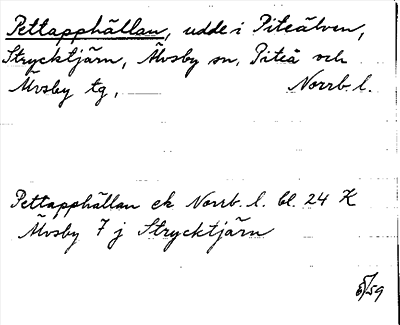 Pettapphällan, udde i Piteälven,
Strycktjärn, Älvsby sn, Piteå och
Älvsby tg, Norrb. l.
Pettapphällan ek Norrb. l. bl. 24 K
Älvsby 7 j Strycktjärn
/59